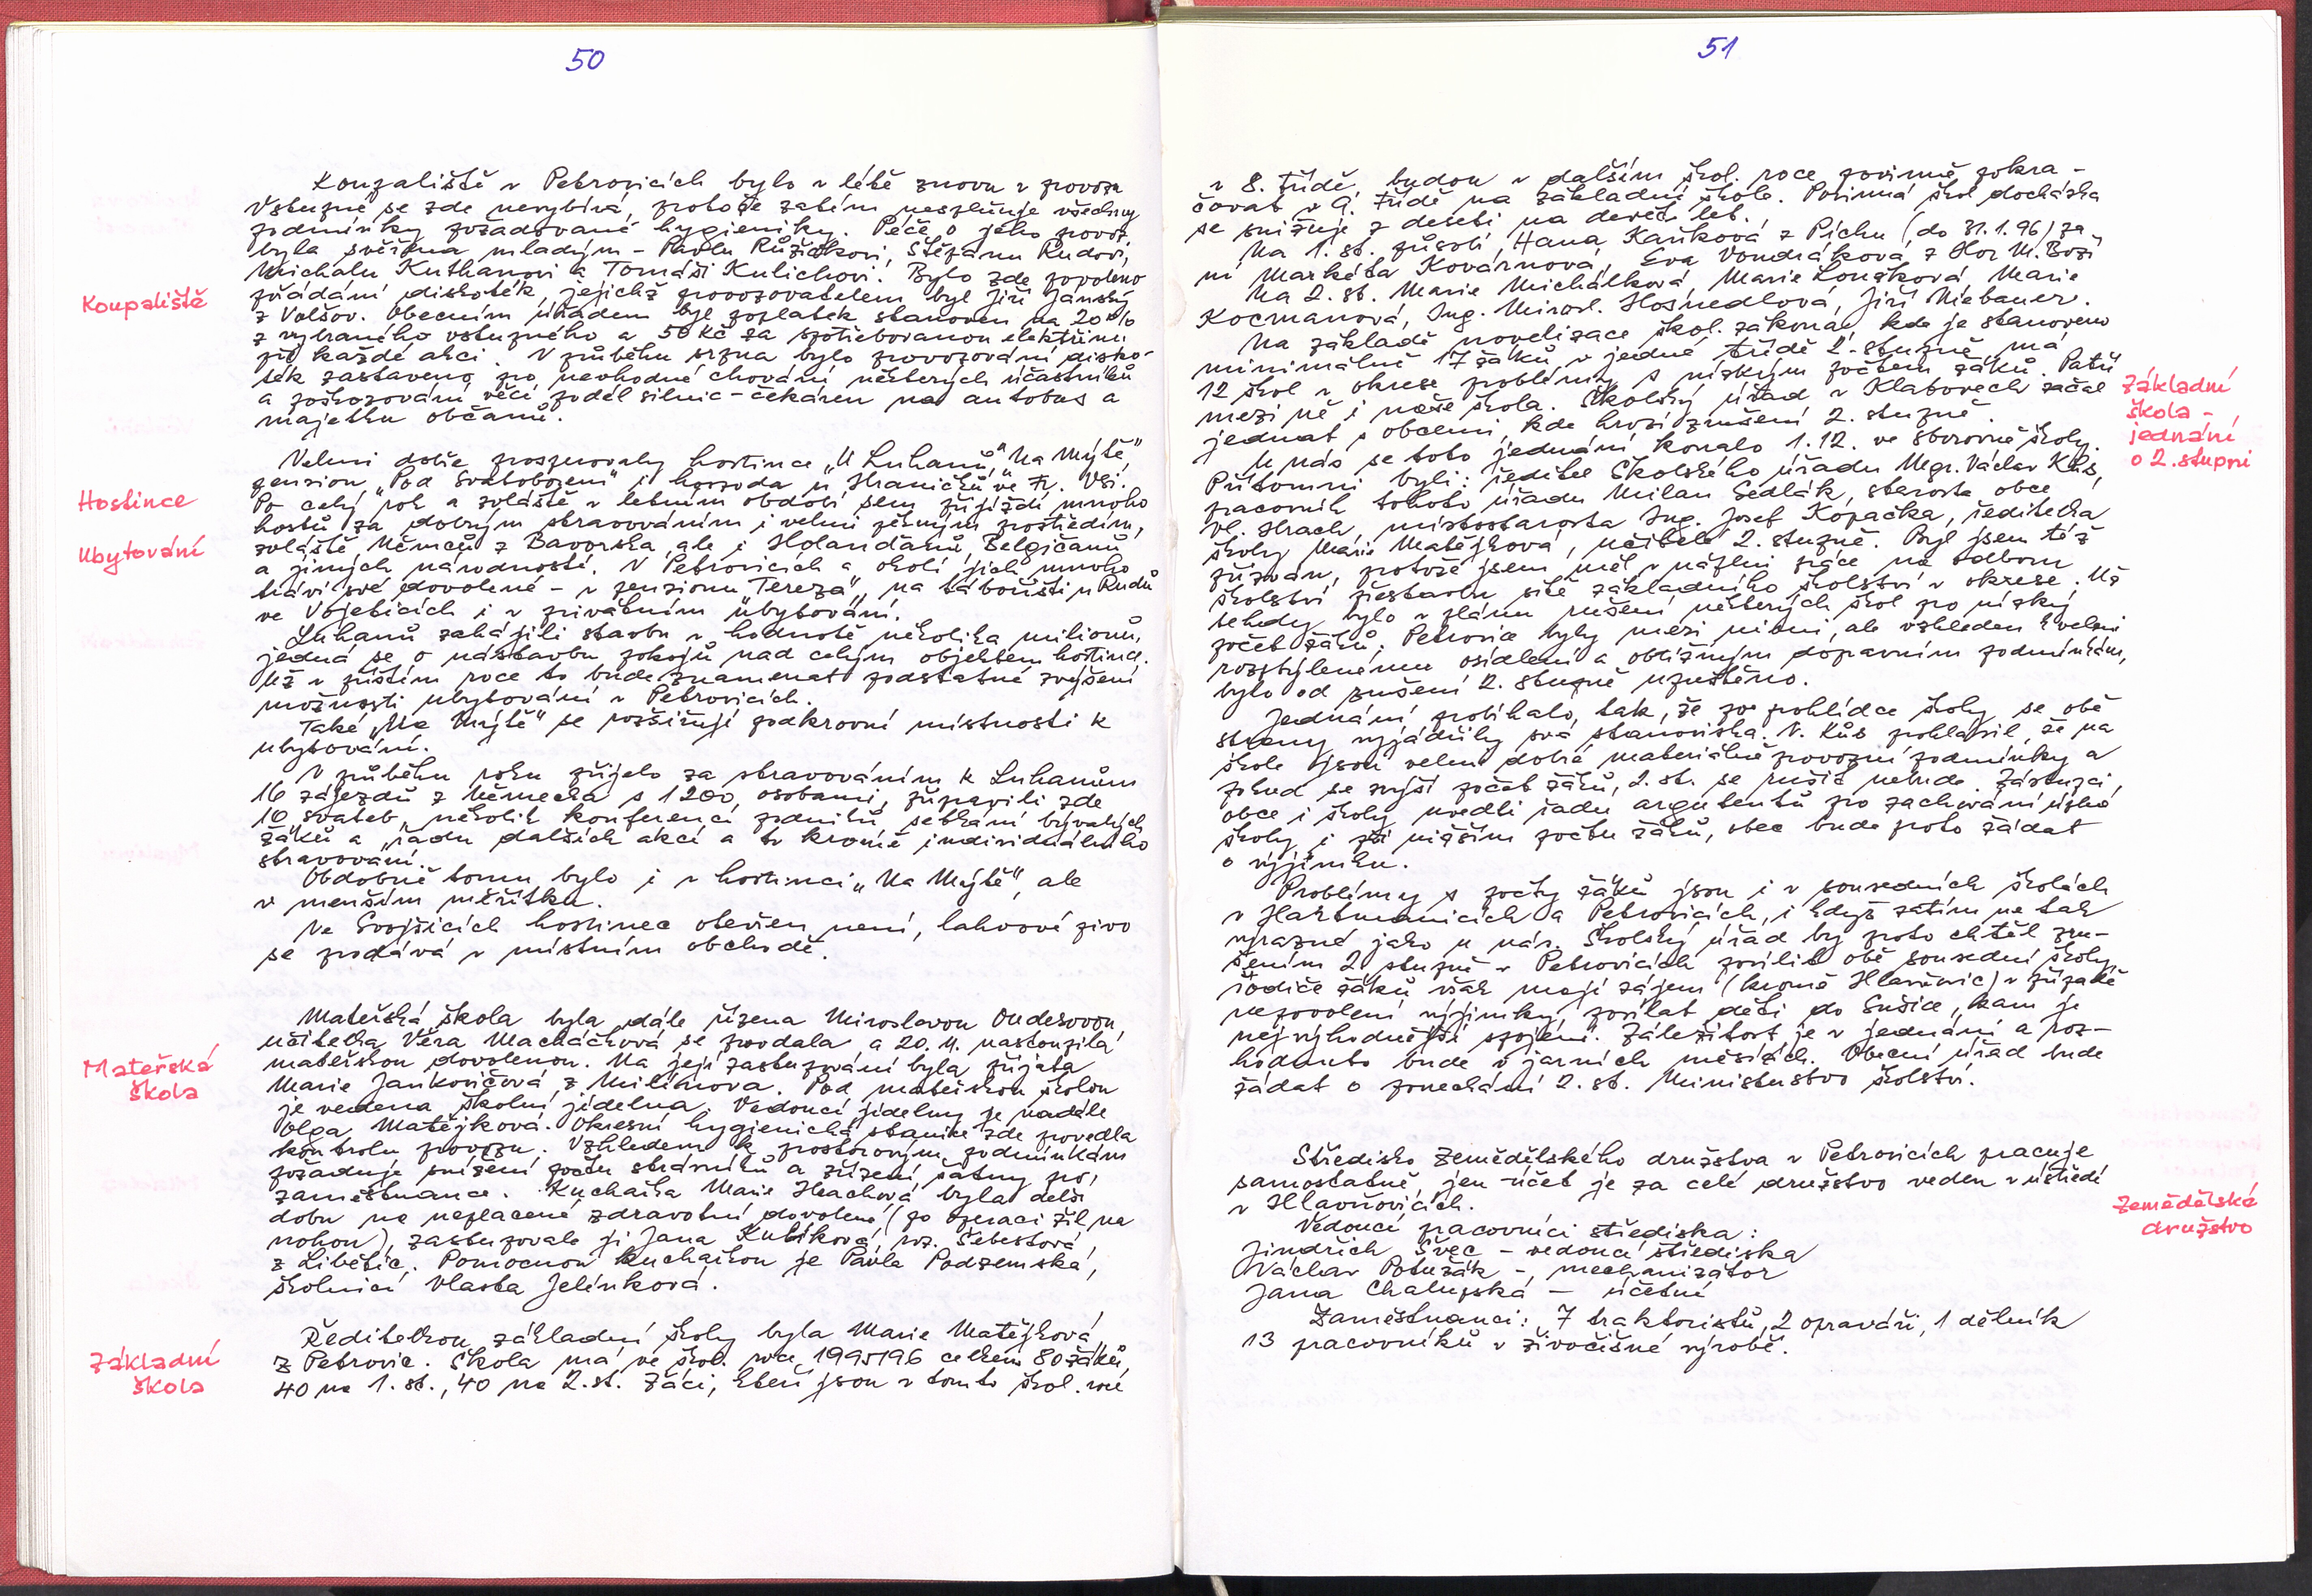 50
Koupaliště v Petrovicích bylo v létě znovu v provozu
Vstupné se zde nevybírá, protože zatím nesplňuje všechny
podmínky požadované hygieniky. Péče o jeho provoz
byla svěřena mladým - Pavlu Růžičkovi, Štěpánu Rudovi,
Michalu Kuthanovi a Tomáši Kulichovi. Bylo zde povoleno
Koupaliště
pořádání diskoték, jejichž provozovatelem byl Jiří Jánský
z Volšov. Obecním úřadem byl poplatek stanoven na 20%
z vybraného vstupného a 50 Kč za spotřebovanou elektřinu
při každé akci. V průběhu srpna bylo provozování disko-
ték zastaveno pro nevhodné chování některých účastníků
a poškozování věcí podél silnic - čekáren na autobus a
majetku občanů.
Velmi dobře prosperovaly hostince „U Luhanů", „Na Mýtě",
pension „Pod Svatoborem" i hospoda u Hraničků ve Fr. Vsi.
Hostince
Po celý rok a zvláště v letním období sem přijíždí mnoho
hostů za dobrým stravováním i velmi pěkným prostředím,
Ubytování
zvláště Němců z Bavorska, ale i Holanďanů, Belgičanů
a jiných národností. V Petrovicích a okolí jich mnoho
tráví své dovolené - v penzionu „Tereza", na tábořišti u Rudů
ve Vojeticích i v privátním ubytování.
Luhanů zahájili stavbu v hodnotě několika milionů,
jedná se o nástavbu pokojů nad celým objektem hostince.
Už v příštím roce to bude znamenat podstatné zvýšení
možností ubytování v Petrovicích.
Také „Na Mýtě" se rozšiřují podkrovní místnosti k
ubytování.
V průběhu roku přijelo za stravováním k Luhanům
16 zájezdů z Německa s 1200 osobami, připravili zde
10 svateb, několik konferencí podniků, setkání bývalých
žáků a řadu dalších akcí a to kromě individuálního
stravování.
Obdobně tomu bylo i v hostinci „Na Mýtě", ale
v menším měřítku.
Ve Svojšicích hostinec otevřen není, lahvové pivo
se prodává v místním obchodě.
Mateřská škola byla dále řízena Miroslavou Ouderovou,
učitelka Věra Macháčková se provdala a 20.11. nastoupila
Mateřská
škola
mateřskou dovolenou. Na její zastupování byla přijata
Marie Jankovičová z Milínova. Pod mateřskou školou
je vedena školní jídelna. Vedoucí jídelny je nadále
Olga Matějková. Okresní hygienická stanice zde provedla
kontrolu provozu. Vzhledem k prostorovým podmínkám
požaduje snížení počtu strávníků a zřízení šatny pro
zaměstnance. Kuchařka Marie Hrachová byla delší
dobu na neplacené zdravotní dovolené (po operaci žil na
nohou), zastupovala ji Jana Kubíková, roz. Šebestová,
z Libětic. Pomocnou kuchařkou je Pavla Podzemská,
školnicí Vlasta Jelínková.
Ředitelkou základní školy byla Marie Matějková
Základní
škola
z Petrovic. Škola má ve škol. roce 1995/96 celkem 80 žáků,
40 na 1. st., 40 na 2. st. Žáci, kteří jsou v tomto škol. roce
51
v 8. třídě, budou v dalším škol. roce povinně pokra-
čovat v 9. třídě na základní škole. Povinná škol. docházka
se snižuje z deseti na devět let.
Na 1. st. působí, Hana Kaňková z Píchu (do 31.1.96) za
ní Markéta Kovárnová, Eva Vondráková z Hor M. Boží
Na 2. st. Marie Michálková, Marie Loužková, Marie
Kocmanová, Ing. Mirosl. Hosnedlová, Jiří Niebauer.
Na základě novelizace škol. zákona, kde je stanoveno
minimálně 17 žáků v jedné třídě 2. stupně, má
12 škol v okrese problémy s nízkým počtem žáků. Patří
mezi ně i naše škola. Školský úřad v Klatovech začal
Základní
škola -
jednání
o 2. stupni
jednat s obcemi, kde hrozí zrušení 2. stupně.
U nás se toto jednání konalo 1.12. ve sborovně školy.
Přítomni byli: ředitel Školského úřadu Mgr. Václav Kůs,
pracovník tohoto úřadu Milan Sedlák, starosta obce
Vl. Hrach, místostarosta Ing. Josef Kopačka, ředitelka
školy Marie Matějková, učitelé 2. stupně. Byl jsem též
přizván, protože jsem měl v náplni práce na odboru
školství přestavbu sítě základního školství v okrese. Už
tehdy bylo v plánu rušení některých škol pro nízký
počet žáků. Petrovice byly mezi nimi, ale vzhledem k velmi
rozptýlenému osídlení a obtížným dopravním podmínkám,
bylo od zrušení 2. stupně upuštěno.
Jednání probíhalo tak, že po prohlídce školy se obě
strany vyjádřily svá stanoviska. V. Kůs prohlásil, že na
škole jsou velmi dobré materiálně provozní podmínky a
pokud se zvýší počet žáků, 2. st. se rušit nebude. Zástupci
obce i školy uvedli řadu argumentů pro zachování úplné
školy i při nižším počtu žáků, obec bude proto žádat
o výjimku.
Problémy s počty žáků jsou i v sousedních školách
v Hartmanicích a Petrovicích, i když zatím ne tak
výrazné jako u nás. Školský úřad by proto chtěl zru-
šením 2. stupně v Petrovicích posílit obě sousední školy,
rodiče žáků však mají zájem (kromě Hlavňovic) v případě
nepovolení výjimky, posílat děti do Sušice, kam je
nejvýhodnější spojení. Záležitost je v jednání a roz-
hodnuto bude v jarních měsících. Obecní úřad bude
žádat o ponechání 2. st. Ministerstvo školství.
Středisko Zemědělského družstva v Petrovicích pracuje
samostatně, jen účet je za celé družstvo veden v ústředí
Zemědělské
družstvo
v Hlavňovicích.
Vedoucí pracovníci střediska:
Jindřich Švec - vedoucí střediska
Václav Potužák - mechanizátor
Jana Chalupská - účetní
Zaměstnanci: 7 traktoristů, 2 opraváři, 1 dělník
13 pracovníků v živočišné výrobě.